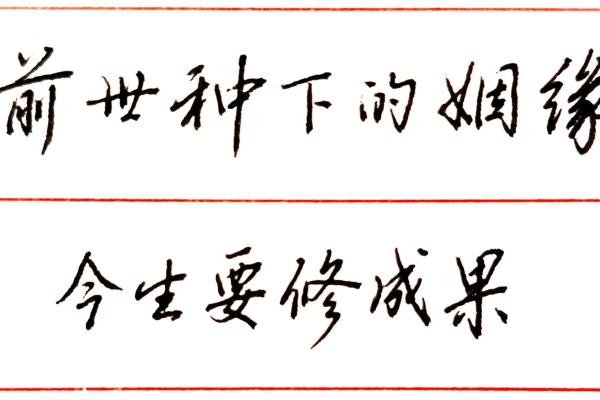 前世种下的姻缘
今生要修成果